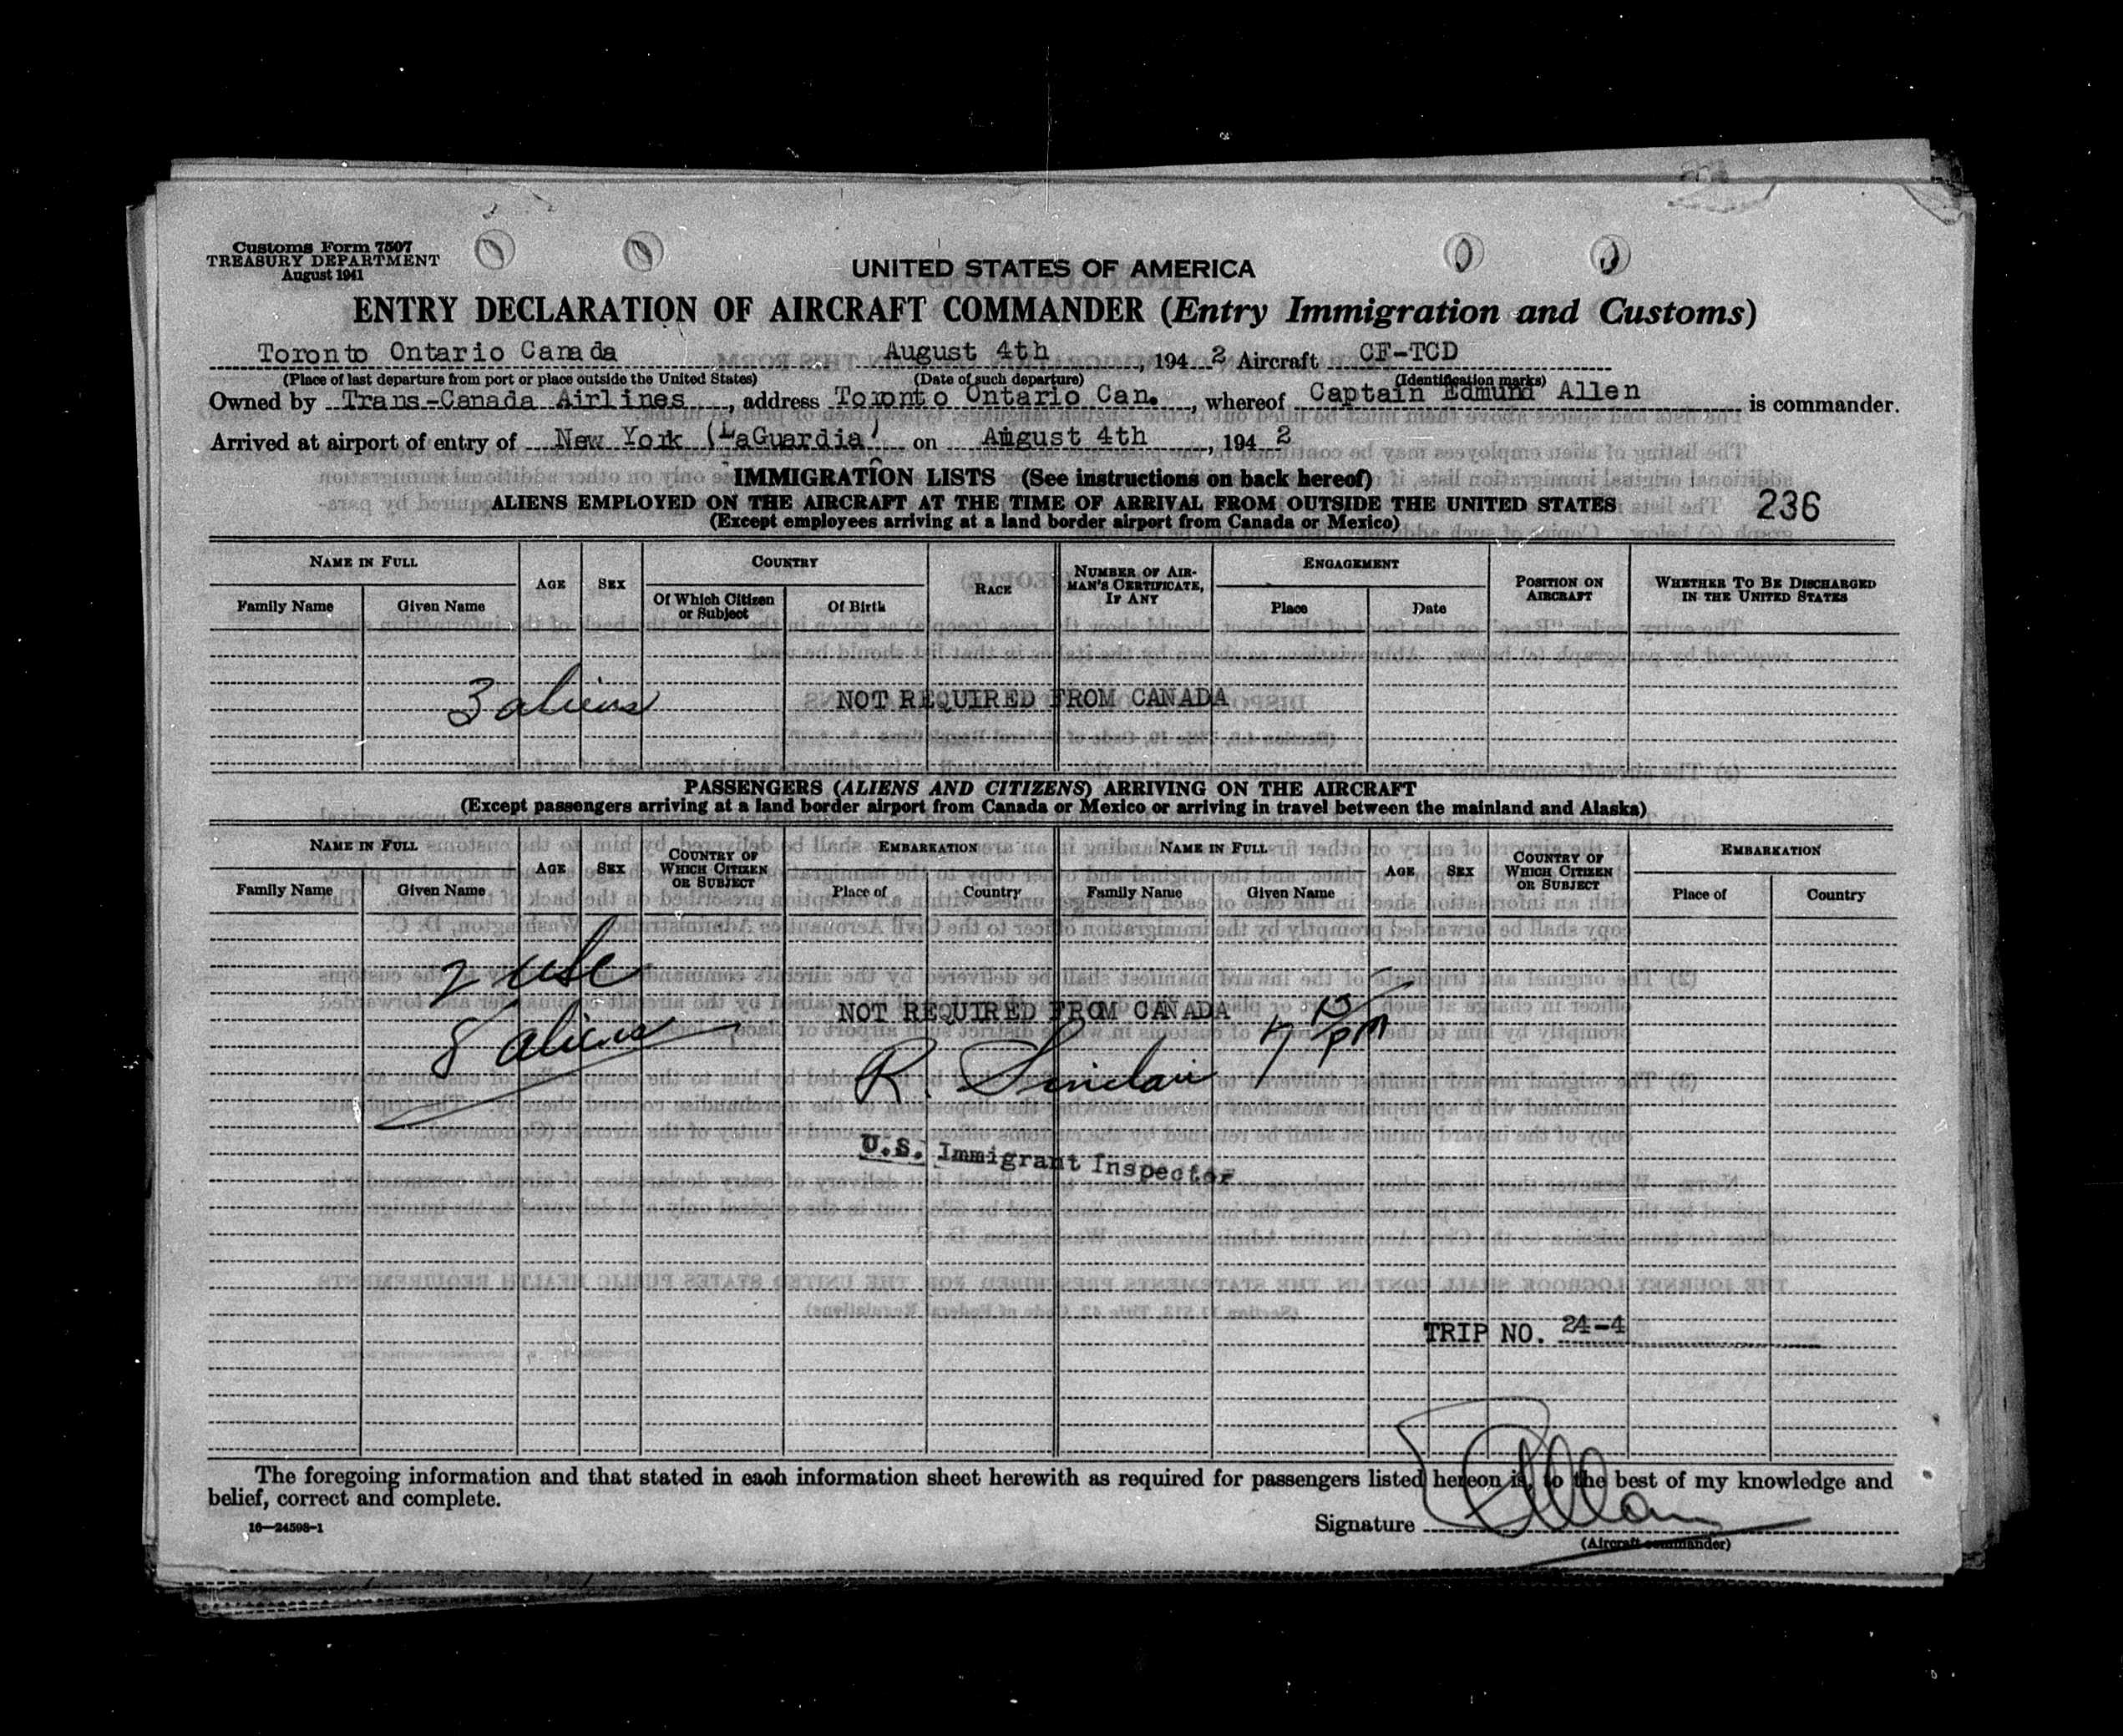 Customs Form 7507
TREASURY DEPARTMENT
August 1941
UNITED STATES OF AMERICA
ENTRY DECLARATION OF AIRCRAFT COMMANDER (Entry Immigration and Customs)
Toronto Ontario Canada August 4th, 1942 Aircraft CF-TCD
(Place of last departure from port or place outside the United States) (Date of such departure) (Identification marks)
Owned by Trans-Canada Airlines, address Toronto Ontario Can., whereof Captain Edmund Allen is commander.
Arrived at airport of entry of New York (LaGuardia) on August 4th, 1942
IMMIGRATION LISTS (See instructions on back hereof)
ALIENS EMPLOYED ON THE AIRCRAFT AT THE TIME OF ARRIVAL FROM OUTSIDE THE UNITED STATES 236
(Except employees arriving at a land border airport from Canada or Mexico)
NAME IN FULL AGE SEX COUNTRY RACE NUMBER OF AIRMAN'S CERTIFICATE, IF ANY ENGAGEMENT POSITION ON AIRCRAFT WHETHER TO BE DISCHARGED IN THE UNITED STATES
Family Name Given Name Of Which Citizen or Subject Of Birth Place Date
3 aliens NOT REQUIRED FROM CANADA
PASSENGERS (ALIENS AND CITIZENS) ARRIVING ON THE AIRCRAFT
(Except passengers arriving at a land border airport from Canada or Mexico or arriving in travel between the mainland and Alaska)
NAME IN FULL AGE SEX COUNTRY OF WHICH CITIZEN OR SUBJECT EMBARKATION NAME IN FULL AGE SEX COUNTRY OF WHICH CITIZEN OR SUBJECT EMBARKATION
Family Name Given Name Place of Country Family Name Given Name Place of Country
2 usc
8 aliens NOT REQUIRED FROM CANADA
R. Sinclair 7 15/PM
U.S. Immigrant Inspector
TRIP NO. 24-4
The foregoing information and that stated in each information sheet herewith as required for passengers listed hereon is, to the best of my knowledge and
belief, correct and complete.
16—24598-1
Signature
(Aircraft commander)